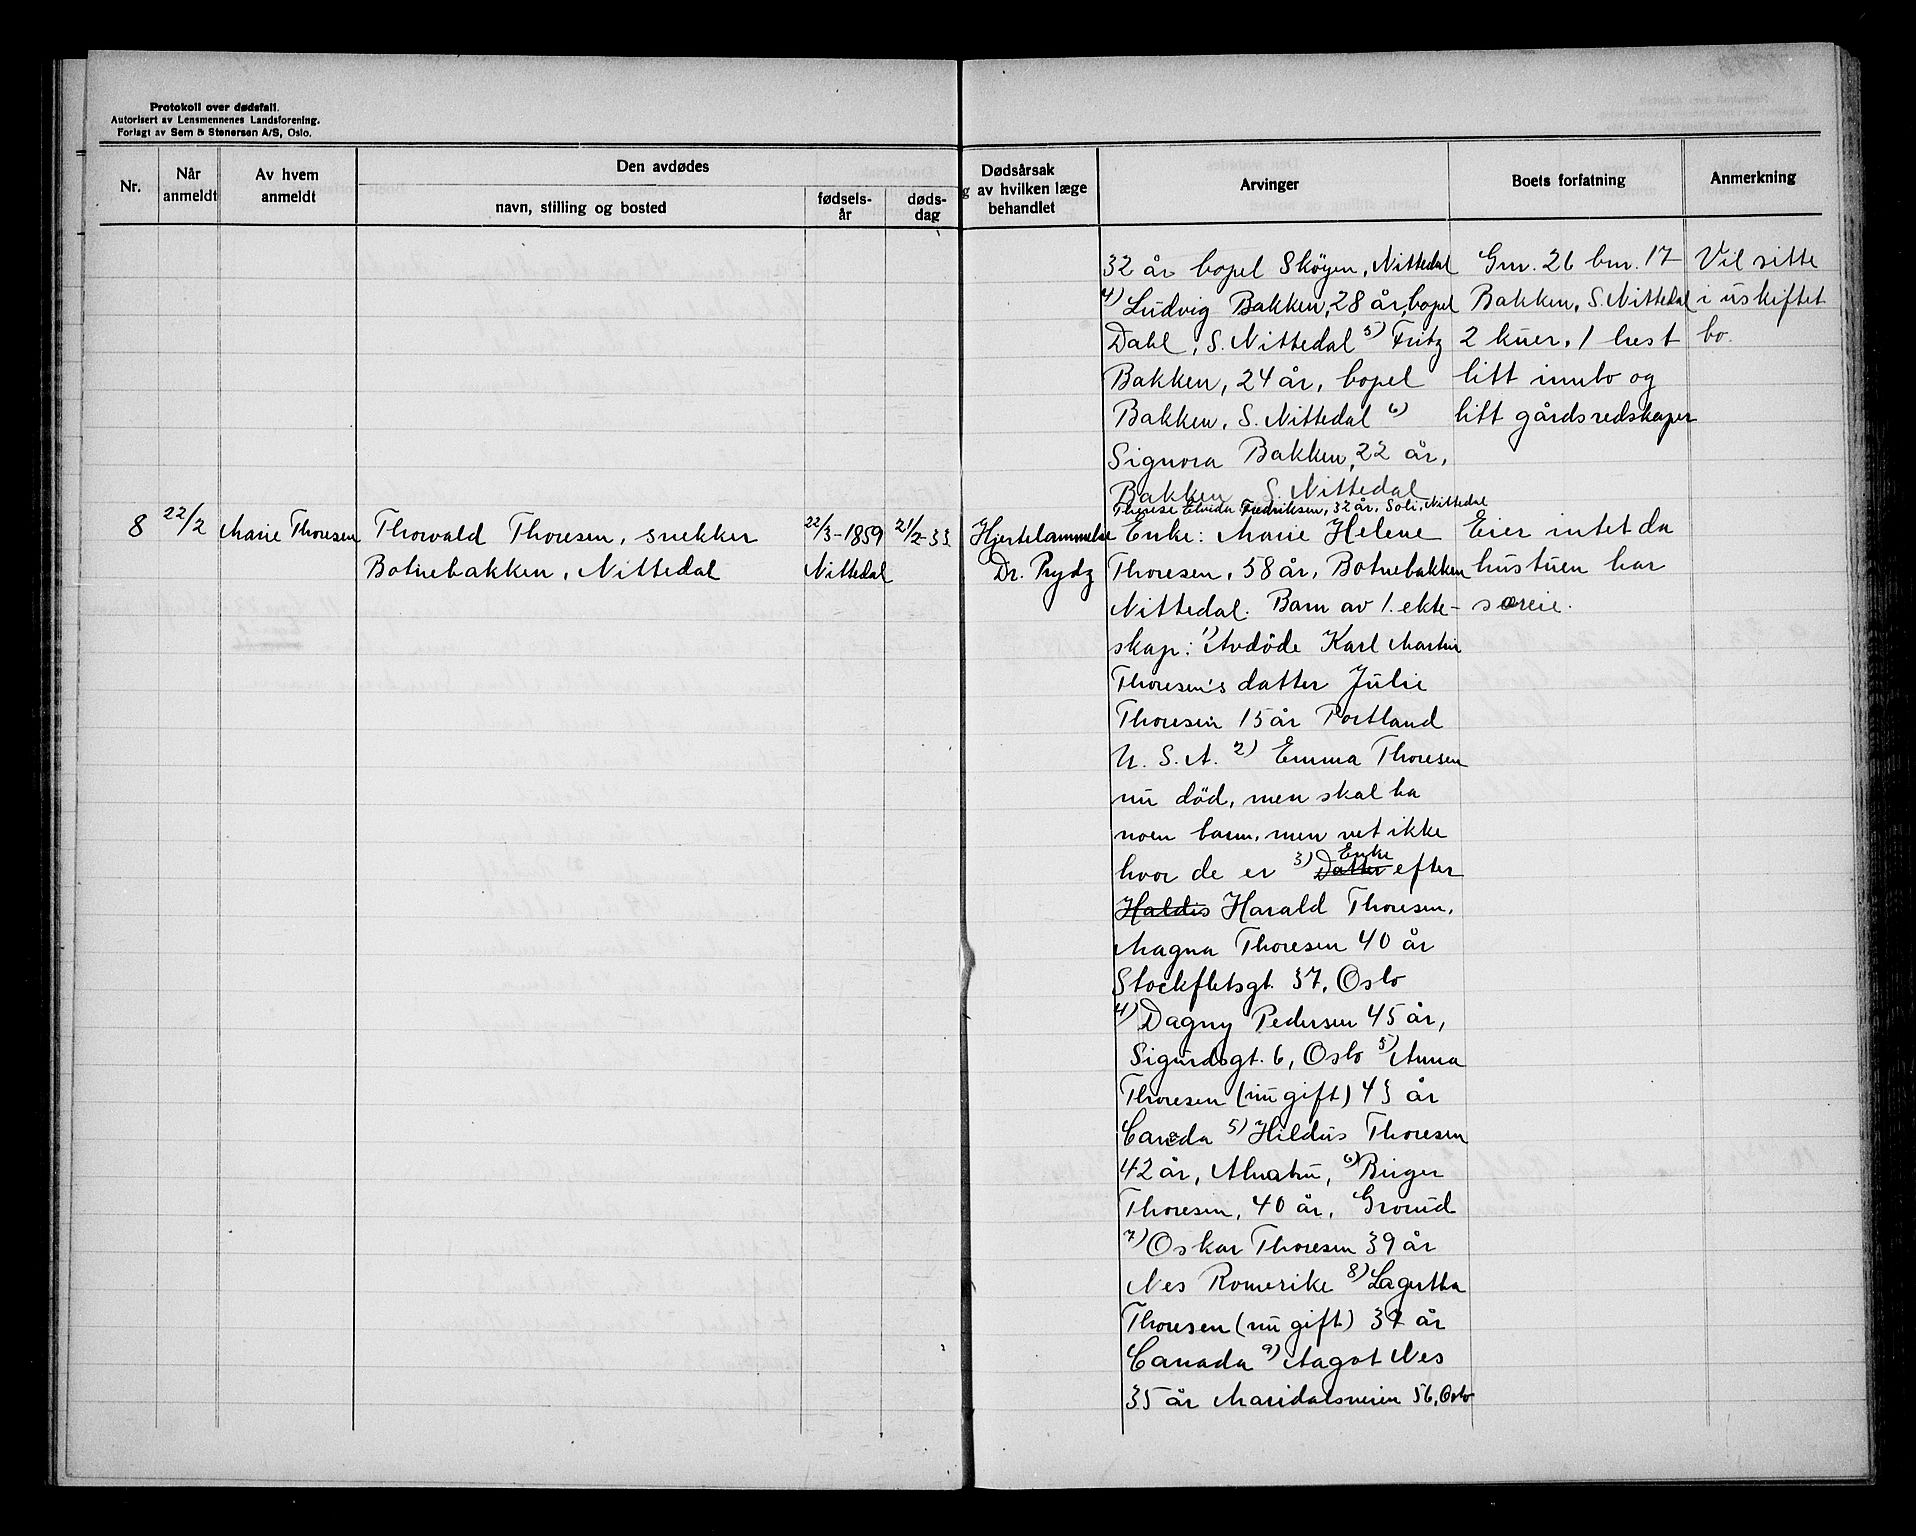 Protokoll over dødsfall.
Autorisert av Lensmennenes Landsforening.
Forlagt av Sem & Stenersen A/S, Oslo.
Nr.
Når anmeldt
Av hvem anmeldt
Den avdødes
navn, stilling og bosted
fødselsår
dødsdag
Dødsårsak
g av hvilken læge
behandlet
Arvinger
Boets forfatning
Anmerkning
32 år bopel Skøyen, Nittedal
4) Ludvig Bakken, 28 år, bopel
Dahl, S. Nittedal 5) Fritz
Bakken, 24 år, bopel
Bakken, S. Nittedal 6)
Signora Bakken, 22 år,
Bakken S. Nittedal
Therese Elvida Fredriksen, 32 år, Soli, Nittedal
Gnr. 26 bnr. 17
Bakken, S. Nittedal
2 kuer, 1 hest
litt innbo og
litt gårdsredskaper
Vil sitte
i uskiftet
bo.
8
22/2
Marie Thoresen
Thorvald Thoresen, snekker
Botnebakken, Nittedal
22/3-1859
Nittedal
21/2-33
Hjertelammelse
Dr. Prydz
Enke: Marie Helene
Thoresen, 58 år, Botnebakken
Nittedal. Barn av 1. ekte-
skap: 1) Avdöde Karl Martin
Thoresen's datter Julie
Thoresen 15 år Portland
U. S. A. 2) Emma Thoresen
nu död, men skal ha
noen barn, men vet ikke
hvor de er 3) Datter Enke efter
Haldis Harald Thoresen,
Magna Thoresen 40 år
Stockfletsgt. 37, Oslo
4) Dagny Pedersen 45 år,
Sigurdsgt. 6, Oslo 5) Anna
Thoresen (nu gift) 43 år
Canada 5) Hildus Thoresen
42 år, 6) Birger
Thoresen, 40 år, Grorud
7) Oskar Thoresen 39 år
Nes Romerike 8) Lagertha
Thoresen (nu gift) 37 år
Canada 9) Aagot Nes
35 år Maridalsveien 56, Oslo
Eier intet da
hustruen har
særeie.